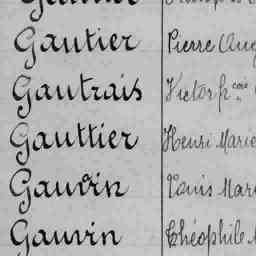 Gautier Pierre Aug
Gautrais Victor fr.çois
Gauttier Henri Marie
Gauvin Louis Mar
Gauvin Théophile